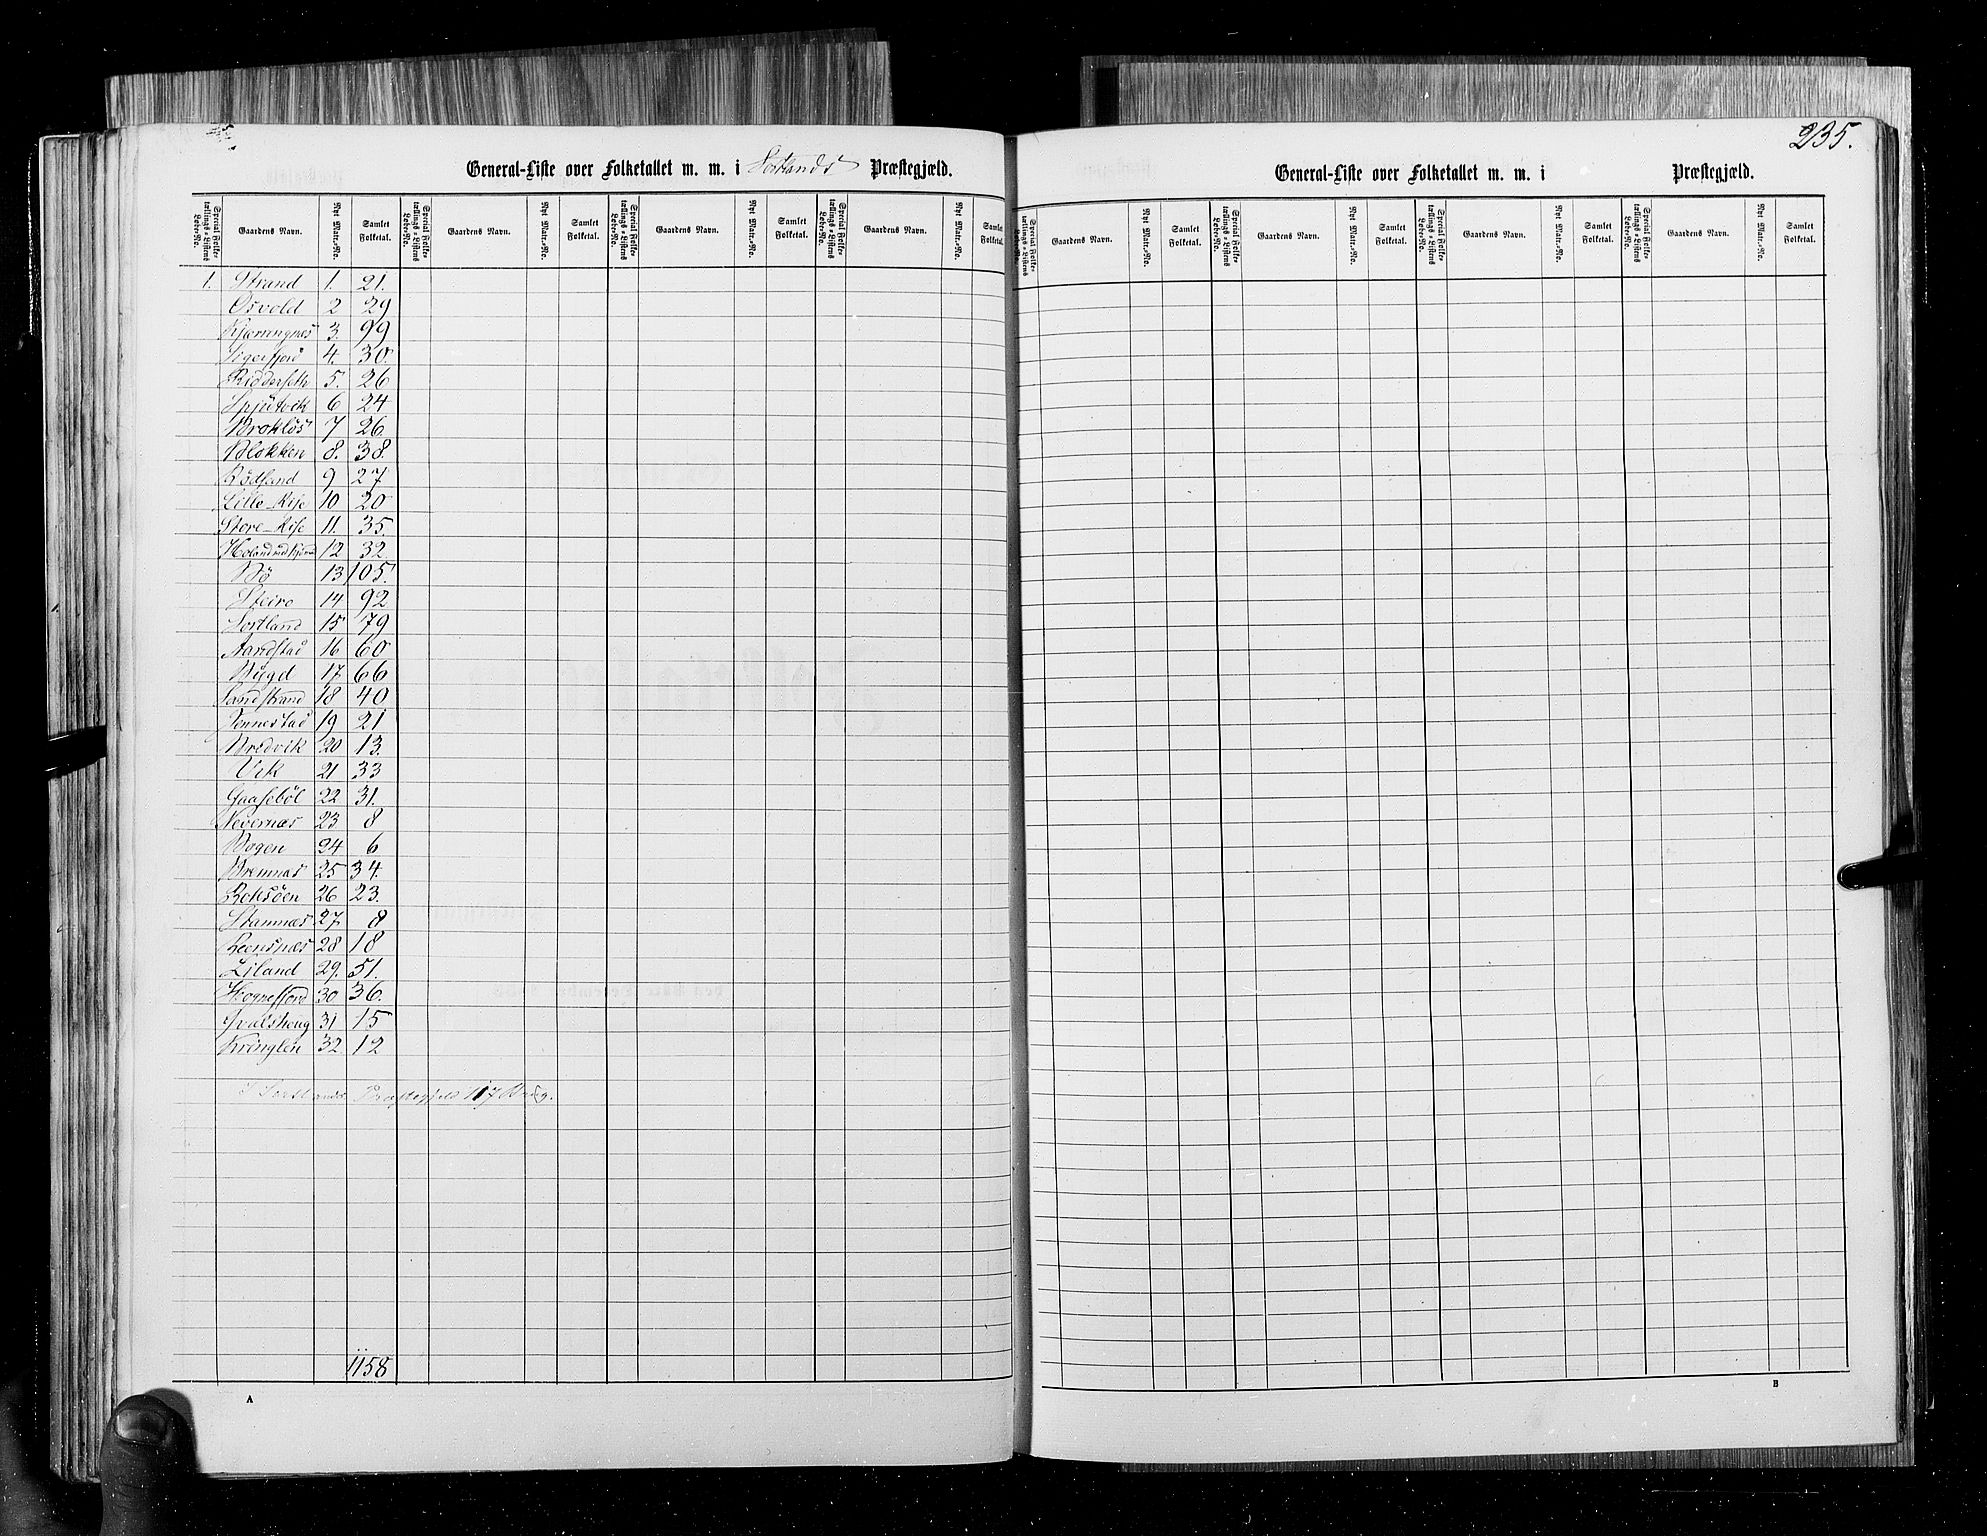 235.
General-Liste over Folketallet m. m. i Sortlands Præstegjæld.
Special Folketællings-Listens Løbe-No. Gaardens Navn. Nyt Matr.-No. Samlet Folketal. Special Folketællings-Listens Løbe-No. Gaardens Navn. Nyt Matr.-No. Samlet Folketal. Special Folketællings-Listens Løbe-No. Gaardens Navn. Nyt Matr.-No. Samlet Folketal. Special Folketællings-Listens Løbe-No. Gaardens Navn. Nyt Matr.-No. Samlet Folketal.
1. Strand 1. 21.
Osvold 2 29
Kjærringnæs 3. 99
Sigerfjord 4. 30.
Ridderseth 5. 26
Spjutvik 6 24
Brokløs 7 26
Blokken 8. 38.
Rödsand 9 27
Lille-Kise 10 20
Store-Kise 11. 35.
Holand 12 32
Bö 13 105.
Steiro 14 92
Sortland 15 79
Aandstad 16 60
Bygd 17 66
Sandstrand 18 40
Jennestad 19 21
Bredvik 20 13.
Vik 21 33
Gaasebøl 22 31.
Nevernæs 23 8
Bogen 24 6
Bremnæs 25 34.
Roksöen 26 23.
Stamnæs 27 8
Reensnæs 28 18
Liland 29. 51.
Hognefjord 30 36.
Qvalshoug 31 15
Kringlen 32. 12
I Sortlands Præstegjeld 117 Brug.
1158
A
General-Liste over Folketallet m. m. i Præstegjæld.
Special Folketællings-Listens Løbe-No. Gaardens Navn. Nyt Matr.-No. Samlet Folketal. Special Folketællings-Listens Løbe-No. Gaardens Navn. Nyt Matr.-No. Samlet Folketal. Special Folketællings-Listens Løbe-No. Gaardens Navn. Nyt Matr.-No. Samlet Folketal. Special Folketællings-Listens Løbe-No. Gaardens Navn. Nyt Matr.-No. Samlet Folketal.
B